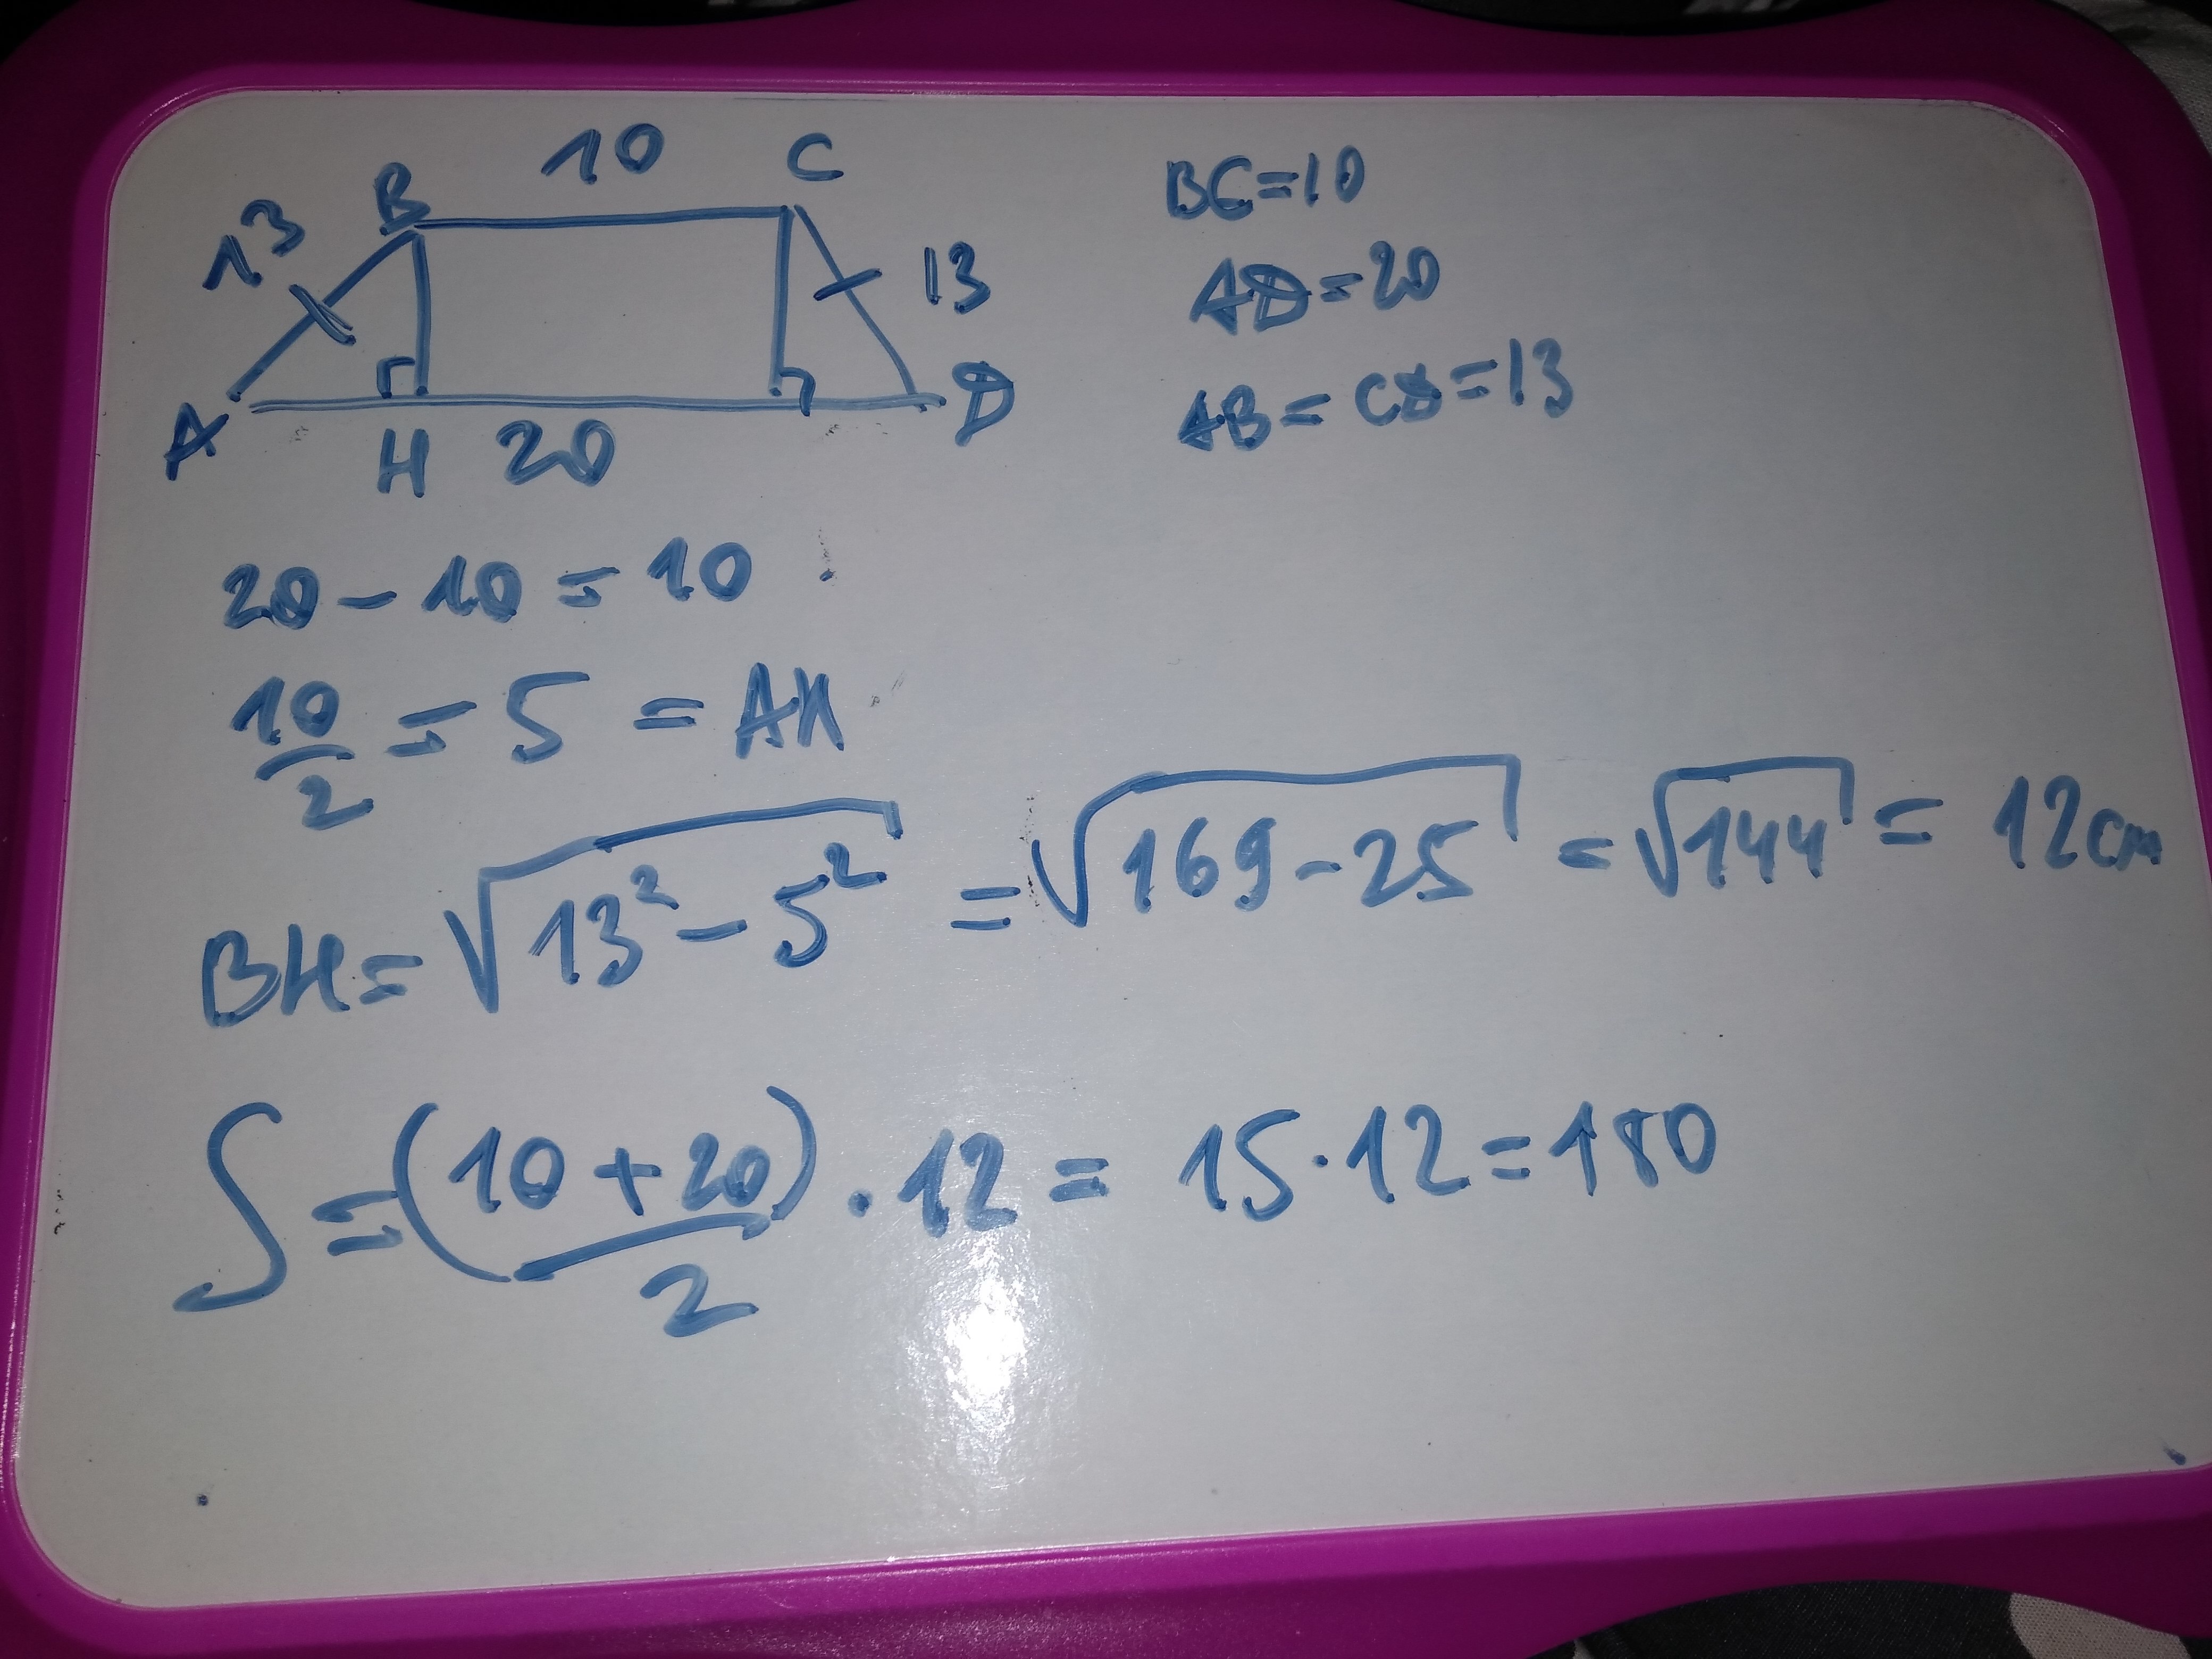 10
B
C
13
13
A
H
20
D
BC=10
AD=20
AB=CD=13
20-10=10
10/2=5=AH
BH=√13²-5²=√169-25=√144=12cm
S=(10+20)/2·12=15·12=180